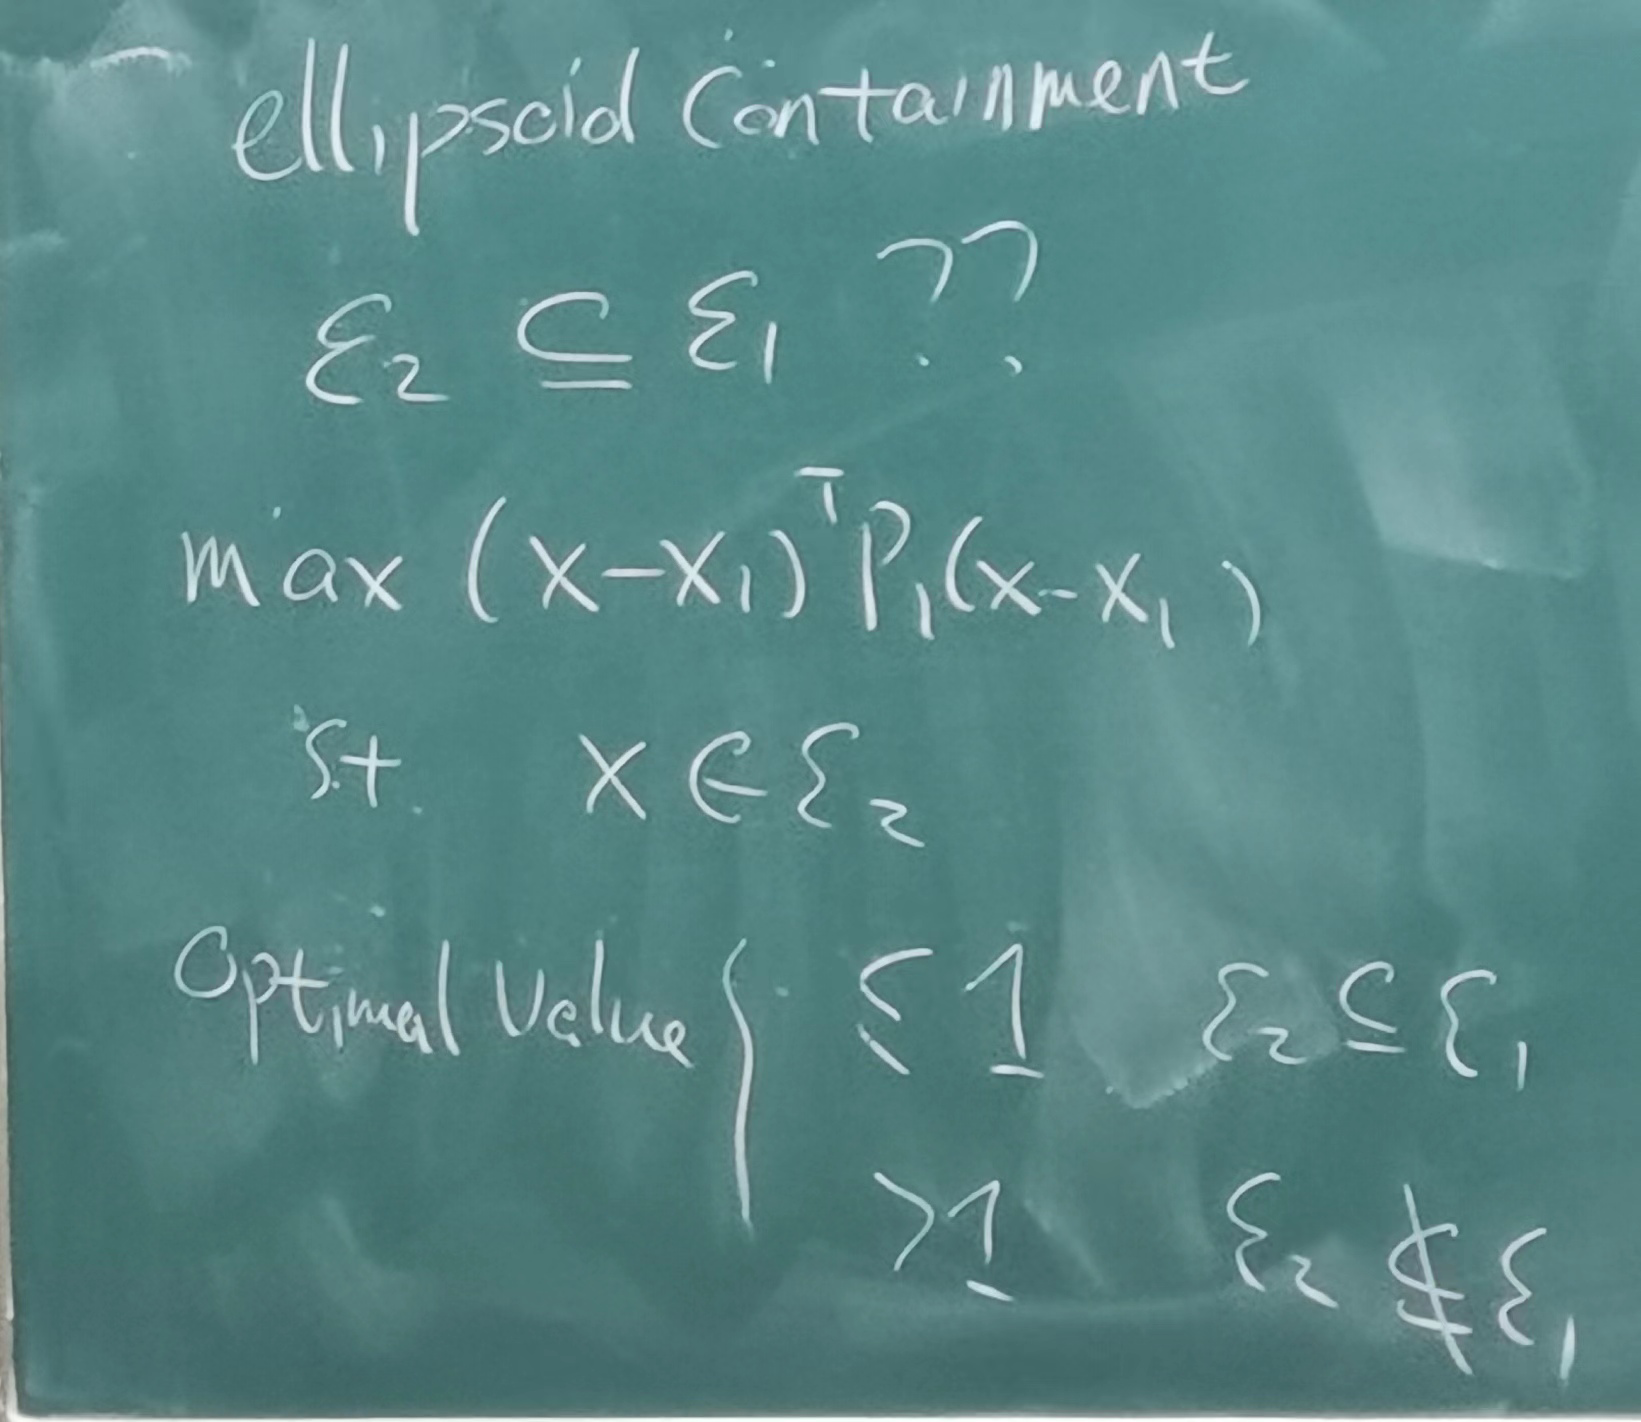 ellipsoid Containment
ℰ₂ ⊆ ℰ₁ ??
max (x-x₁)ᵀP₁(x-x₁)
s.t. x∈ℰ₂
Optimal Value { ≤ 1 ℰ₂⊆ℰ₁
>1 ℰ₂ ⊈ ℰ₁